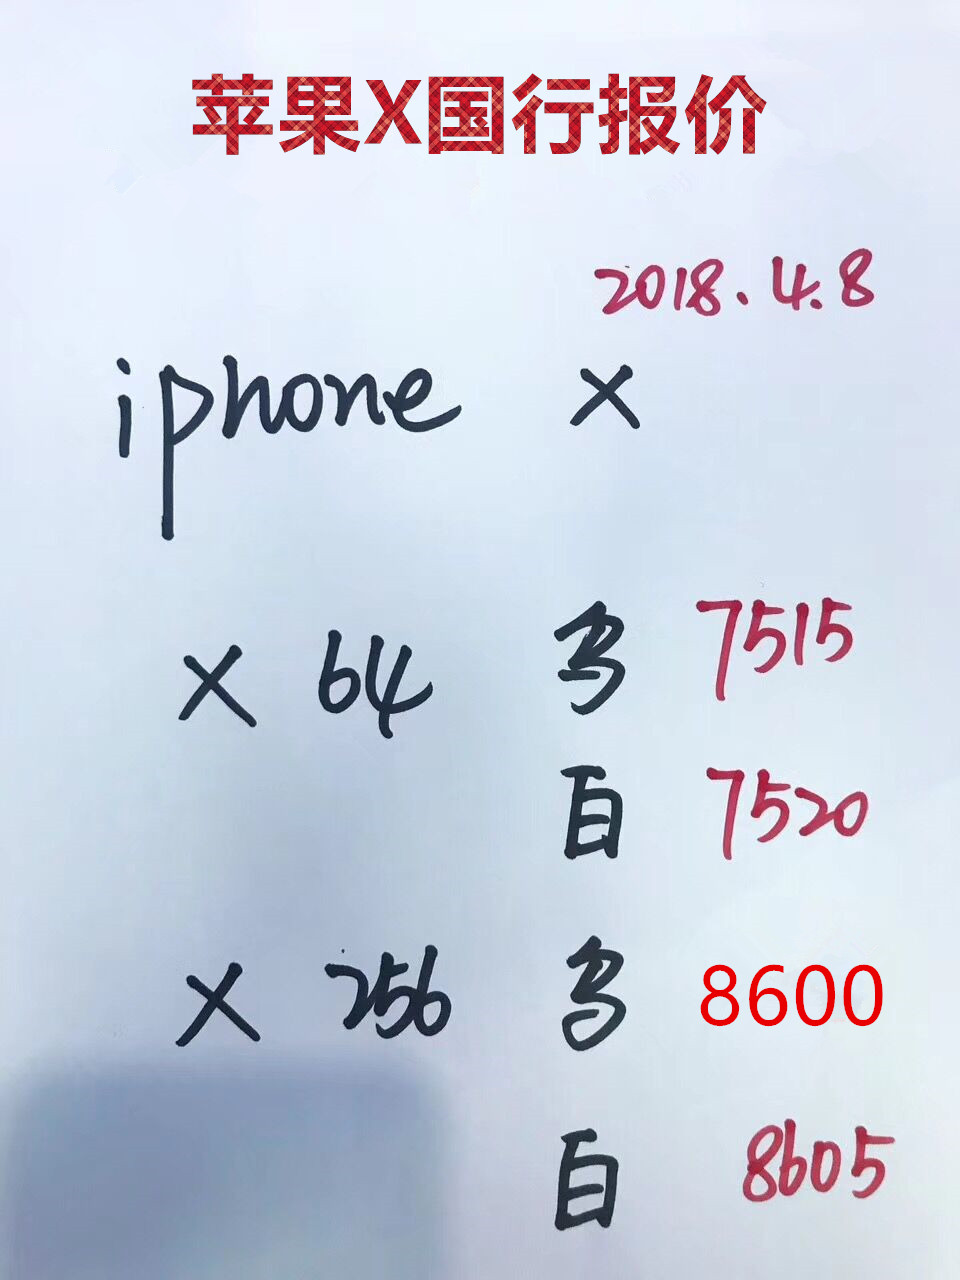 苹果X国行报价
2018.4.8
iphone X
X 64 7515
白 7520
X 256 8600
白 8605